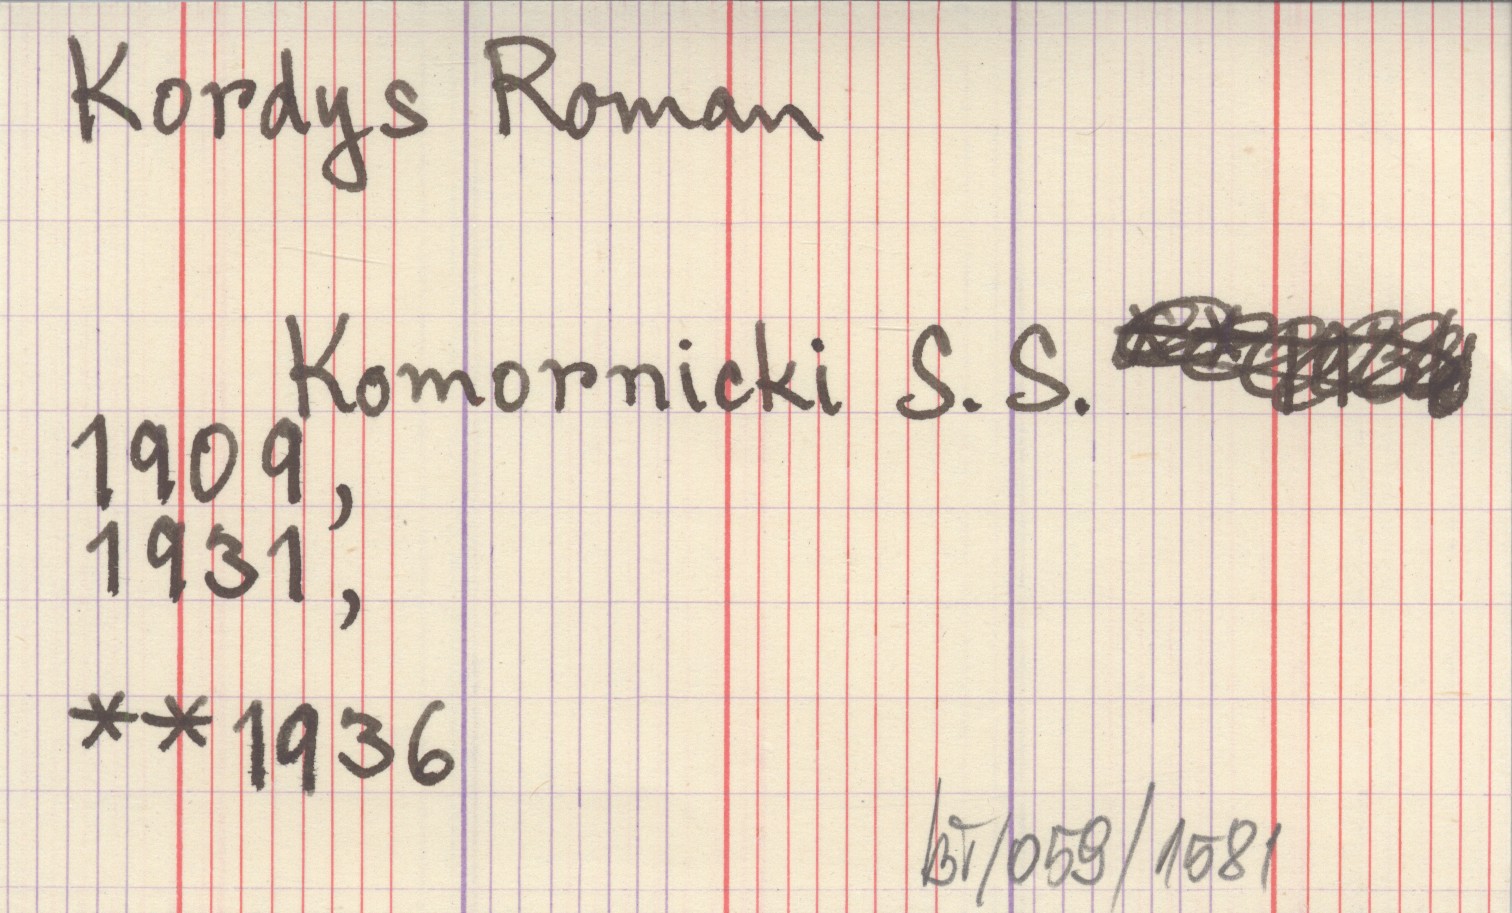 Kordys Roman
Komornicki S. S.
1909,
1931,
**1936
BT/059/1581